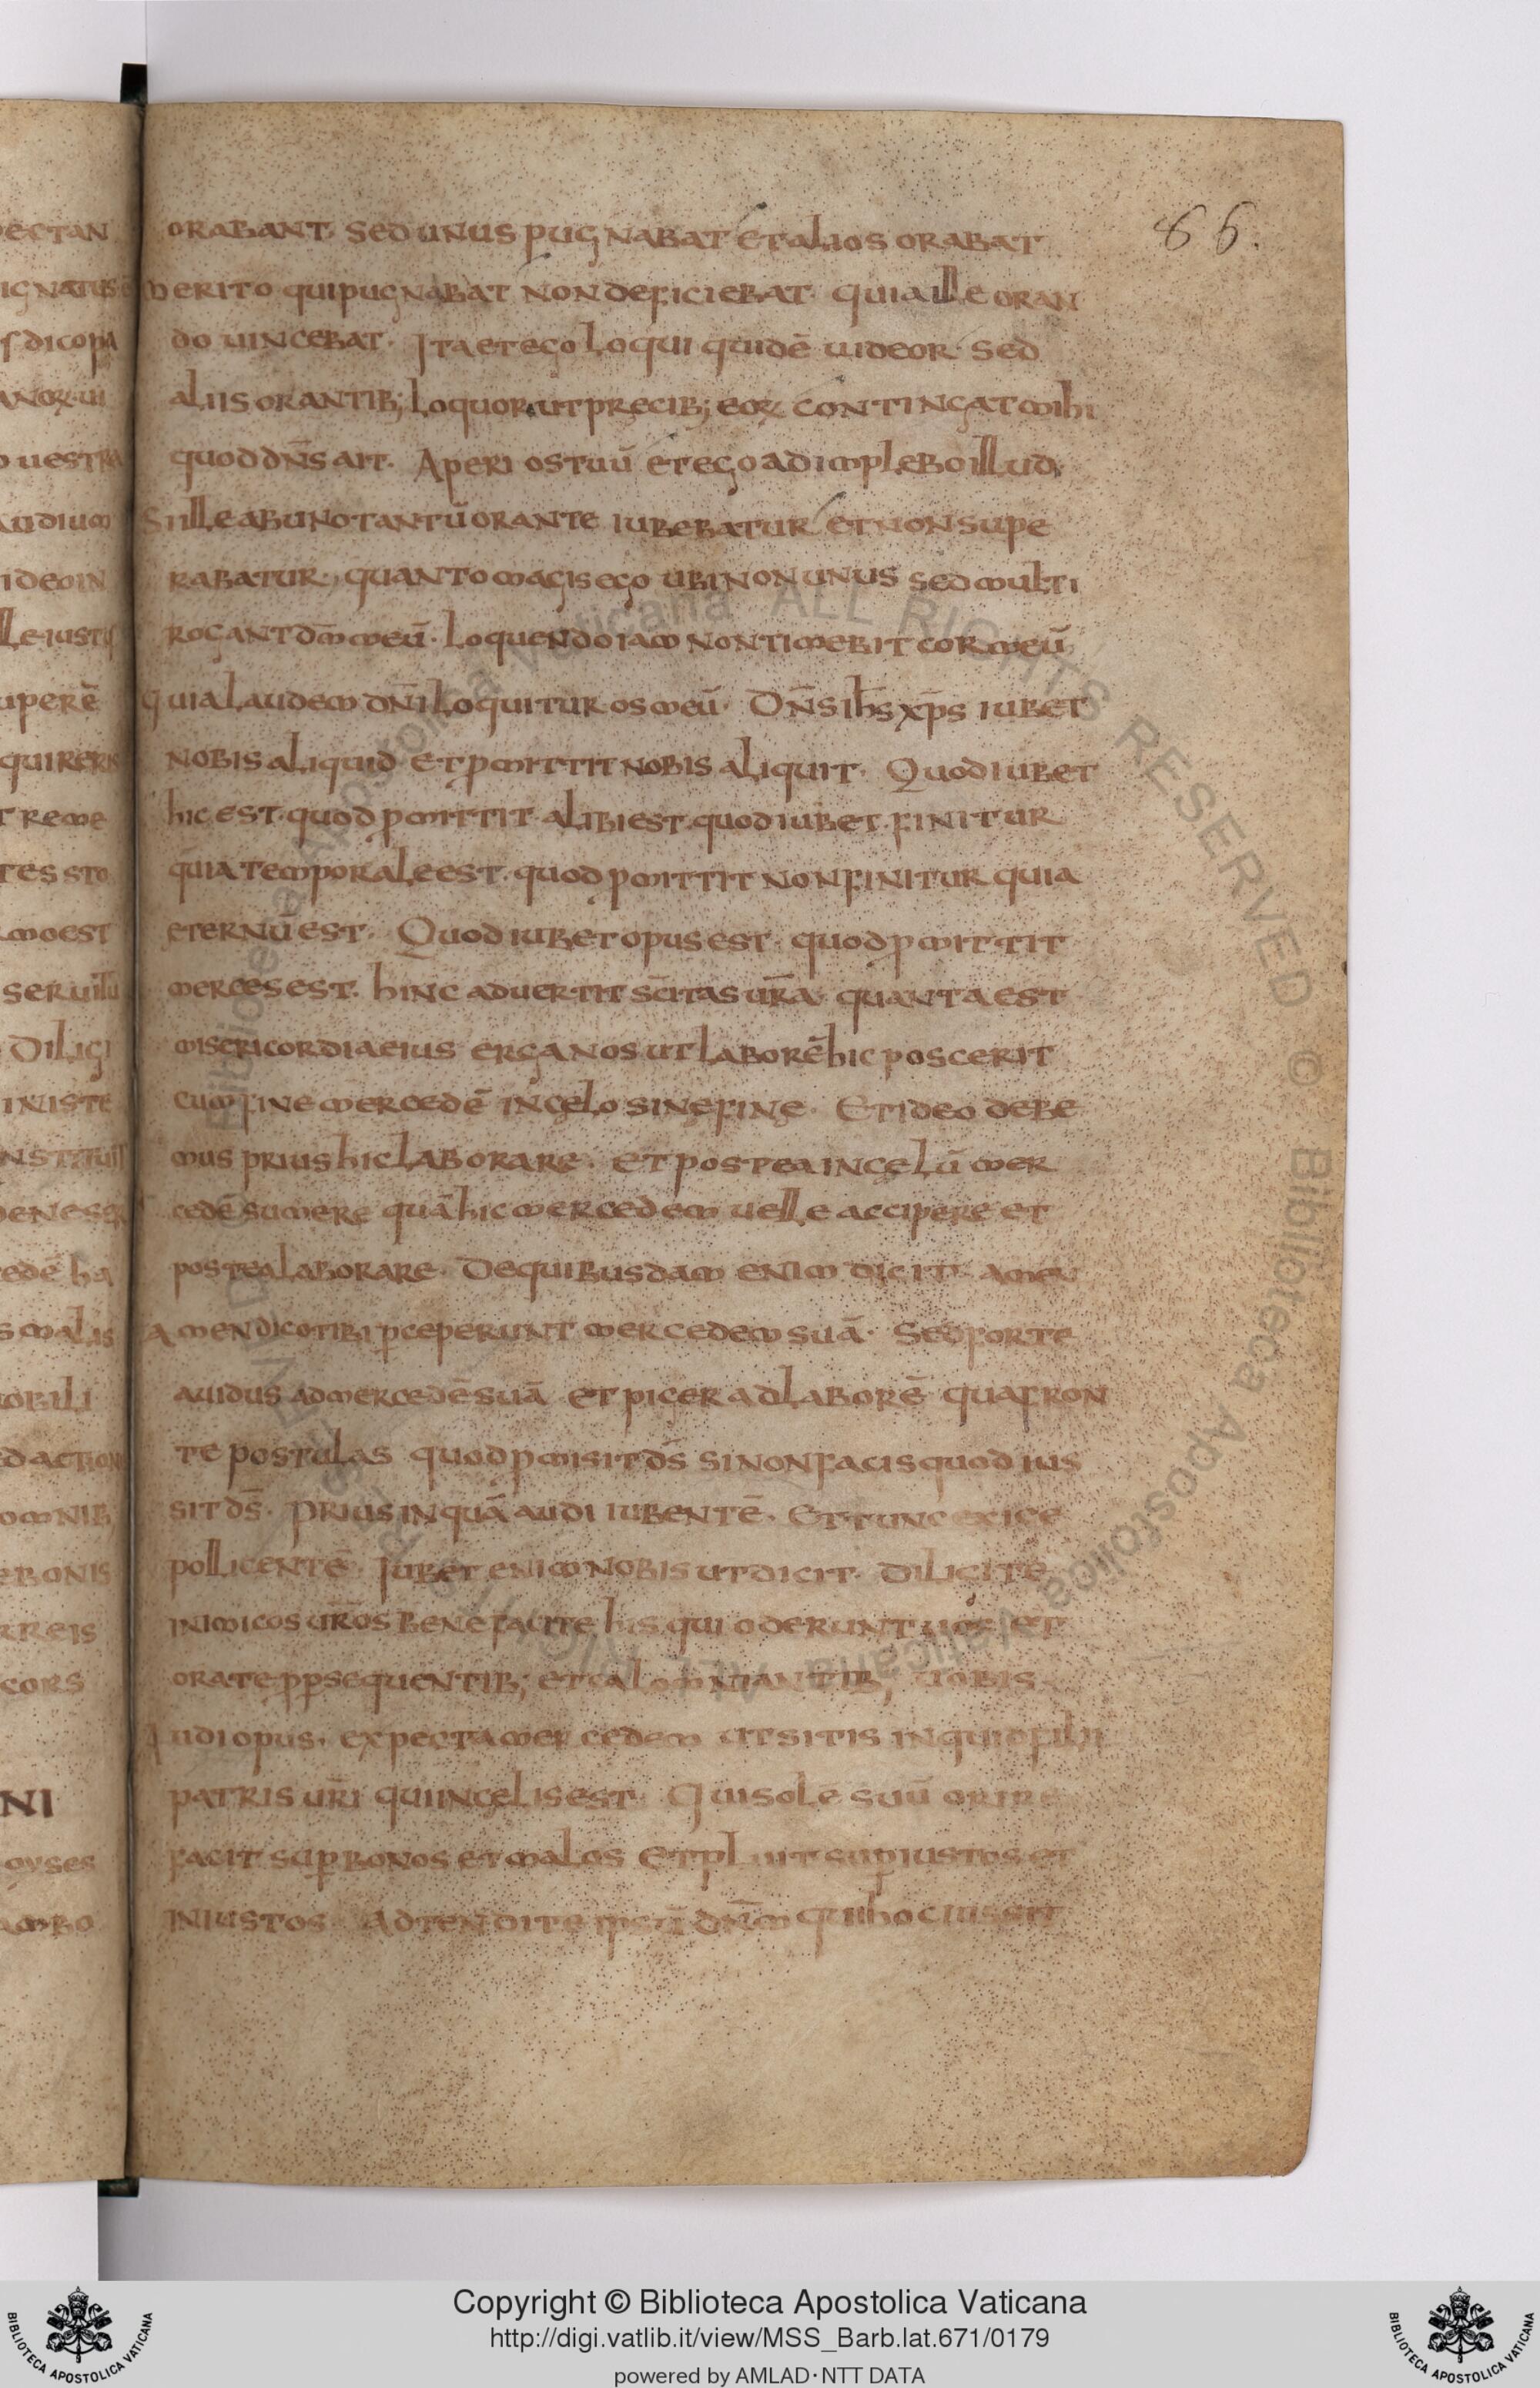 86.
orabant· sed unus pugnabat et alios orabat
merito qui pugnabat non deficiebat· quia ille oran
do uincebat· Ita et ego loqui quidē uideor· sed
aliis orantib; loquor ut precib; eoꝝ contingat mihi
quod dn̄s ait· Aperi os tuū et ego adimplebo illud·
Si ille ab uno tantū orante iubebatur et non supe
rabatur· quanto magis ego ubi non unus sed multi
rogant dm̄ meū· loquendo iam non timebit cor meū
quia laudem dn̄i loquitur os meū· Dn̄s ih̄s xp̄s iubet
nobis aliquid et ꝓmittit nobis aliquit· Quod iubet
hic est· quod ꝓmittit alibi est· quod iubet finitur
quia temporale est· quod ꝓmittit non finitur quia
eternū est· Quod iubet opus est· quod ꝓmittit
merces est· hinc aduertit sc̄itas ur̄a quanta est
misericordia eius erga nos ut laborē hic poscerit
cum fine mercedē in cęlo sine fine· Et ideo debe
mus prius hic laborare· et postea in cęlū mer
cedē sumere quā hic mercedem uelle accipere et
postea laborare· De quibusdam enim dicit· amen
amen dico tibi ꝑceperunt mercedem suā· Sed forte
auidus ad mercedē suā et piger ad laborē qua fron
te postulas quod ꝓmisit ds̄ si non facis quod ius
sit ds̄· Prius inquā audi iubentē· Et tunc exige
pollicentē· Iubet enim nobis ut dicit· Diligite
inimicos ur̄os benefacite his qui oderunt uos et
orate ꝓ ꝑsequentib; et calomniantib; uobis
Audi opus· expecta mercedem ut sitis inquid filii
patris ur̄i qui in celis est· Qui solē suū orire
facit suꝑ bonos et malos et pluit suꝑ iustos et
iniustos· Adtendite ipsū dn̄m qui hoc iussit
Copyright © Biblioteca Apostolica Vaticana
http://digi.vatlib.it/view/MSS_Barb.lat.671/0179
powered by AMLAD·NTT DATA